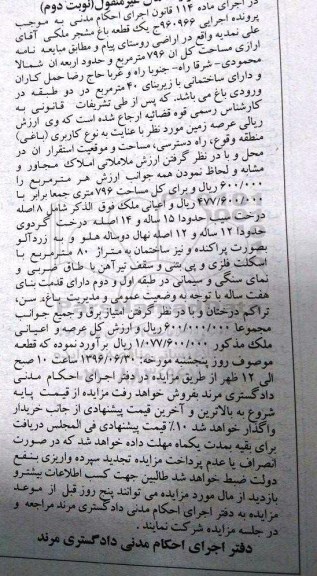 مال غیرمنقول(نوبت دوم)
در اجرای ماده ۱۱۴ قانون اجرای احکام مدنی به موجب
پرونده اجرایی ۹۶۰۹۶۶ج یک قطعه باغ مشجر ملکی آقای
علی نمدیه واقع در اراضی روستای پیام و مطابق مبایعه نامه
ارازی مساحت کل ان ۷۹۶مترمربع و حدود اربعه ان شمالا
محمودی- شرقا راه- جنوبا راه و غربا حاج رضا حمل کاران
و دارای ساختمانی با زیربنای ۴۰مترمربع در دو طبقه در
ورودی باغ می باشد. که پس از طی تشریفات قانونی به
کارشناس رسمی قوه قضائیه ارجاع شده است که وی ارزش
ریالی عرصه زمین مورد نظر با عنایت به نوع کاربری (باغی)
منطقه وقوع، راه دسترسی، مساحت و موقعیت استقرار ان در
محل و با در نظر گرفتن ارزش ملاملاتی املاک مجاور و
مشابه و لحاظ نمودن همه جوانب ارزش هر مترمربع را
۶۰۰/۰۰۰ ریال و برای کل مساحت ۷۹۶متری جمعا برابر با
۴۷۷/۶۰۰/۰۰۰ ریال و اعیانی ملک فوق الذکر شامل ۸ اصله
درخت سیب حدودا ۱۵ ساله و ۱۴ اصله درخت گردوی
حدودا ۱۲ ساله و ۱۲ اصله نهال دوساله هلو و به زردآلو
بصورت پراکنده و نیز ساختمان به متراژ ۸۰ مترمربع با
اسکلت فلزی و پی بتنی و سقف تیرآهن با طاق ضربی و
نمای سنگی و سیمانی در طبقه اول و دوم دارای قدمت بنای
هفت ساله با توجه به وضعیت عمومی و مدیریت باغ، سن،
تراکم درختان و با در نظر گرفتن امتیاز برق و جمیع جوانب
مجموعا ۶۰۰/۰۰۰/۰۰۰ ریال و ارزش کل عرصه و اعیانی
ملک مذکور ۱/۰۷۷/۶۰۰/۰۰۰ ریال برآورد نموده که قطعه
موصوف روز پنجشنبه مورخه: ۱۳۹۶/۰۶/۳۰ ساعت ۱۰ صبح
الی ۱۲ ظهر از طریق مزایده در دفتر اجرای احکام مدنی
دادگستری مرند بفروش خواهد رفت مزایده از قیمت پایه
شروع به بالاترین و آخرین قیمت پیشنهادی از جانب خریدار
واگذار خواهد شد ۱۰٪ قیمت پیشنهادی فی المجلس دریافت
برای بقیه بمدت یکماه مهلت داده خواهد شد که در صورت
انصراف یا عدم پرداخت مزایده تجدید سپرده واریزی بنفع
دولت ضبط خواهد شد طالبین جهت کسب اطلاعات بیشتر و
بازدید از مال مورد مزایده می توانند پنج روز قبل از موعد
مزایده به دفتر اجرای احکام مدنی دادگستری مرند مراجعه و
در جلسه مزایده شرکت نمایند.
دفتر اجرای احکام مدنی دادگستری مرند